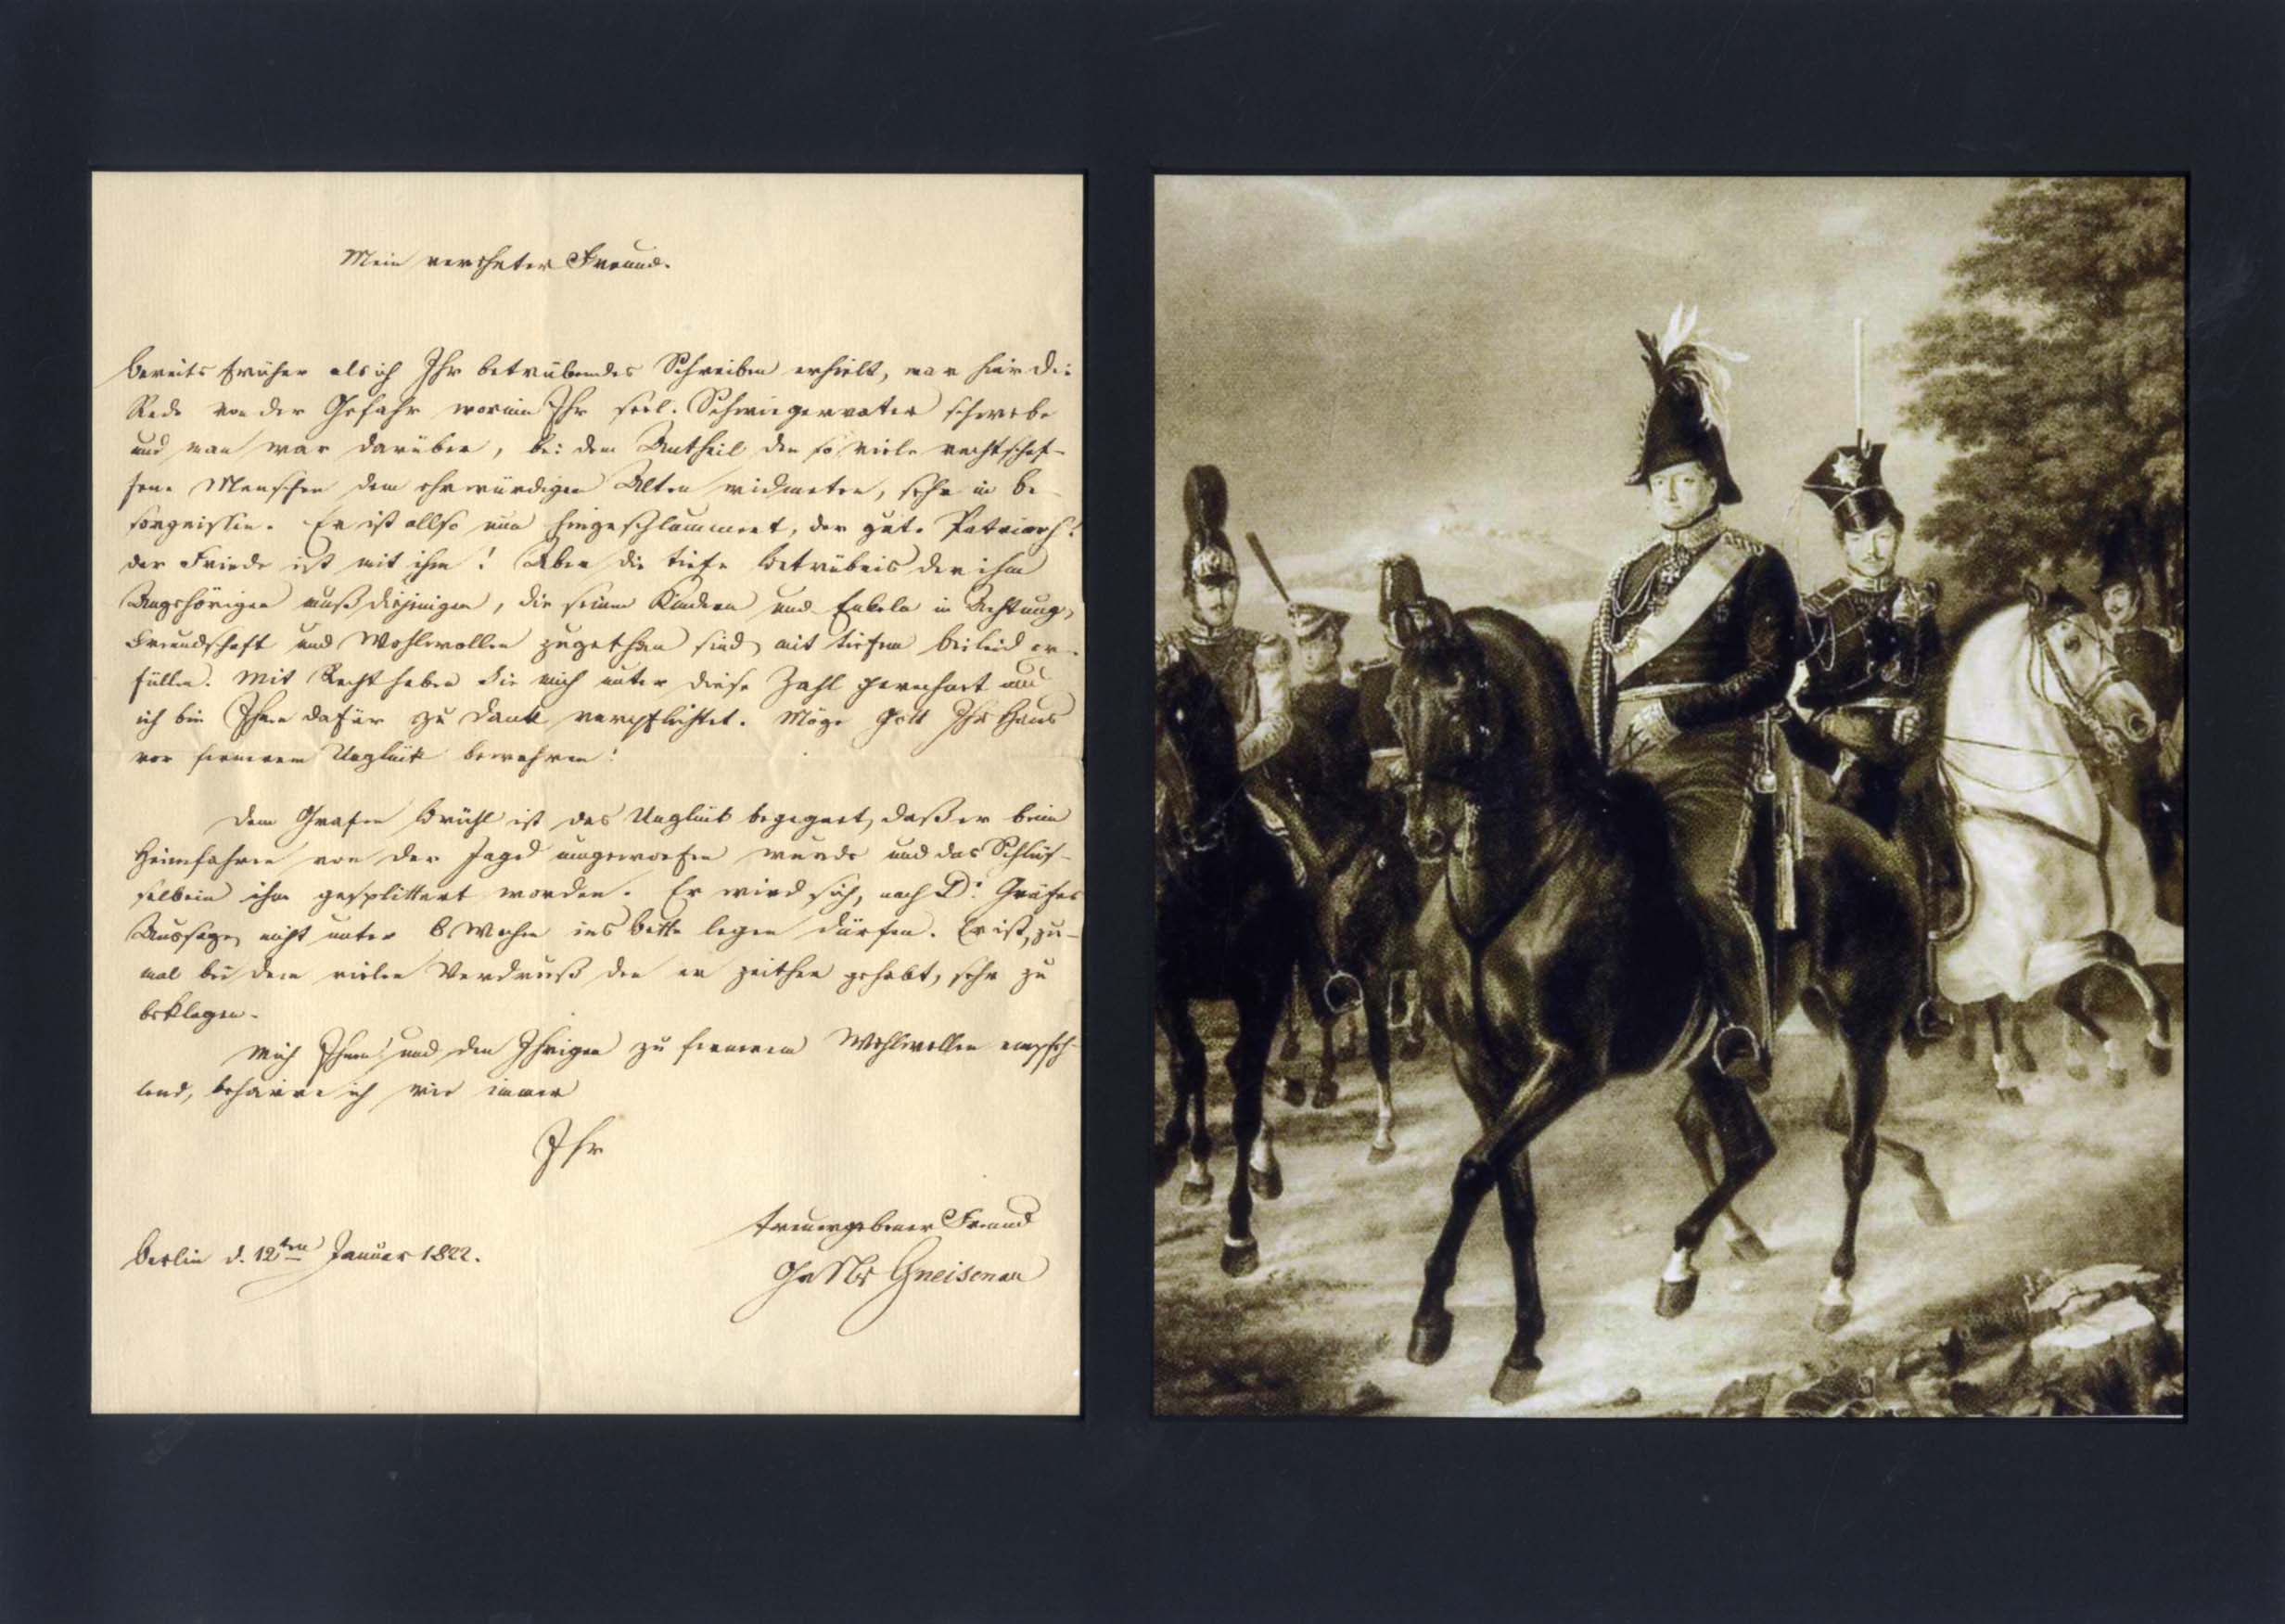 Mein verehrter Freund.
Bereits früher als ich Ihr betrübendes Schreiben erhielt, war hier die
Rede von der Gefahr worinn Ihr seel. Schwiegervater schwebe
und man war darüber, bei dem Antheil den so viele rechtschaf-
fene Menschen dem ehrwürdigen Alten widmeten, sehr in Be-
sorgnissen. Er ist allso nun hingeschlummert, der gute Patriarch!
der Friede ist mit ihm! Aber die tiefe Betrübnis der ihm
Angehörigen muß diejenigen, die seinen Kindern und Enkeln in Achtung,
Freundschaft und Wohlwollen zugethan sind, mit tiefem Beileid er-
füllen. Mit Recht haben Sie mich unter diese Zahl gerechnet und
ich bin Ihnen dafür zu Dank verpflichtet. Möge Gott Ihr Haus
vor fernerem Unglük bewahren!
Dem Grafen Brühl ist das Unglük begegnet, daß er beim
Heimfahren von der Jagd umgeworfen wurde und das Schlüs-
selbein ihm gesplittert worden. Er wird sich, nach Dr. Gräfes
Aussage, nicht unter 6 Wochen ins Bette legen dürfen. Er ist, zu-
mal bei dem vielen Verdruß den er zeither gehabt, sehr zu
beklagen.
Mich Ihnen und den Ihrigen zu fernerem Wohlwollen empfeh-
lend, beharre ich wie immer
Ihr
treuergebener Freund
Berlin d. 12ten Januar 1822.
Gr N v Gneisenau